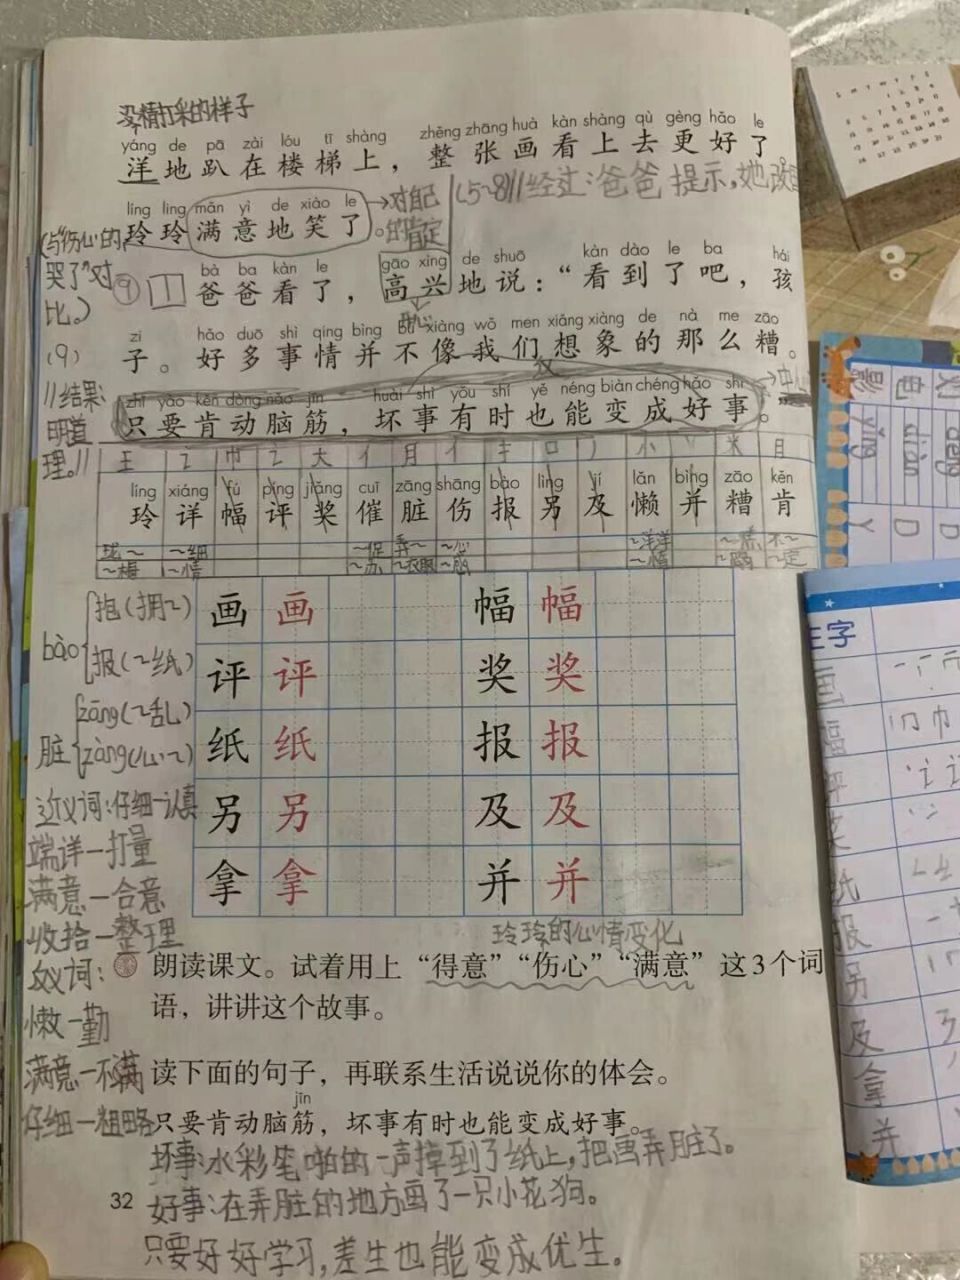 没精打采的样子
yáng de pā zài lóu tī shàng zhěng zhāng huà kàn shàng qù gèng hǎo le
洋地趴在楼梯上，整张画看上去更好了
(5~8)//经过:爸爸提示,她改
líng líng mǎn yì de xiào le
玲玲满意地笑了。
→对自己的肯定
(与“伤心”的,哭了”对比。)
bà ba kàn le gāo xìng de shuō kàn dào le ba hái
⑨ 爸爸看了，高兴地说：“看到了吧，孩
开心
zi hǎo duō shì qing bìng bú xiàng wǒ men xiǎng xiàng de nà me zāo
子。好多事情并不像我们想象的那么糟。
(9)
//结果:明道理。//
zhǐ yào kěn dòng nǎo jīn huài shì yǒu shí yě néng biàn chéng hǎo shì
只要肯动脑筋，坏事有时也能变成好事。
→中心
líng xiáng fú píng jiǎng cuī zāng shāng bào lìng jí lǎn bìng zāo kěn
玲详幅评奖催脏伤报另及懒并糟肯
~细 ~促 弄~ ~心 ~洋洋 ~糕 不~
~情 ~衣服 ~感 ~惰 ~定
画 画 幅 幅
评 评 奖 奖
纸 纸 报 报
另 另 及 及
拿 拿 并 并
bào 抱(拥~)
报(~纸)
脏 zāng(~乱)
zàng(心~)
近义词:仔细—认真
端详—打量
满意—合意
收拾—整理
反义词:
懒—勤
满意—不满
仔细—粗略
玲玲的心情变化
朗读课文。试着用上“得意”“伤心”“满意”这3个词
语，讲讲这个故事。
读下面的句子，再联系生活说说你的体会。
jīn
只要肯动脑筋，坏事有时也能变成好事。
坏事:水彩笔啪的一声掉到了纸上,把画弄脏了。
好事:在弄脏的地方画了一只小花狗。
只要好好学习,差生也能变成优生。
32
生字
画
幅
评
奖
纸
报
另
及
拿
并
影
电
yǐng
diàn
dēng
Y
D
D